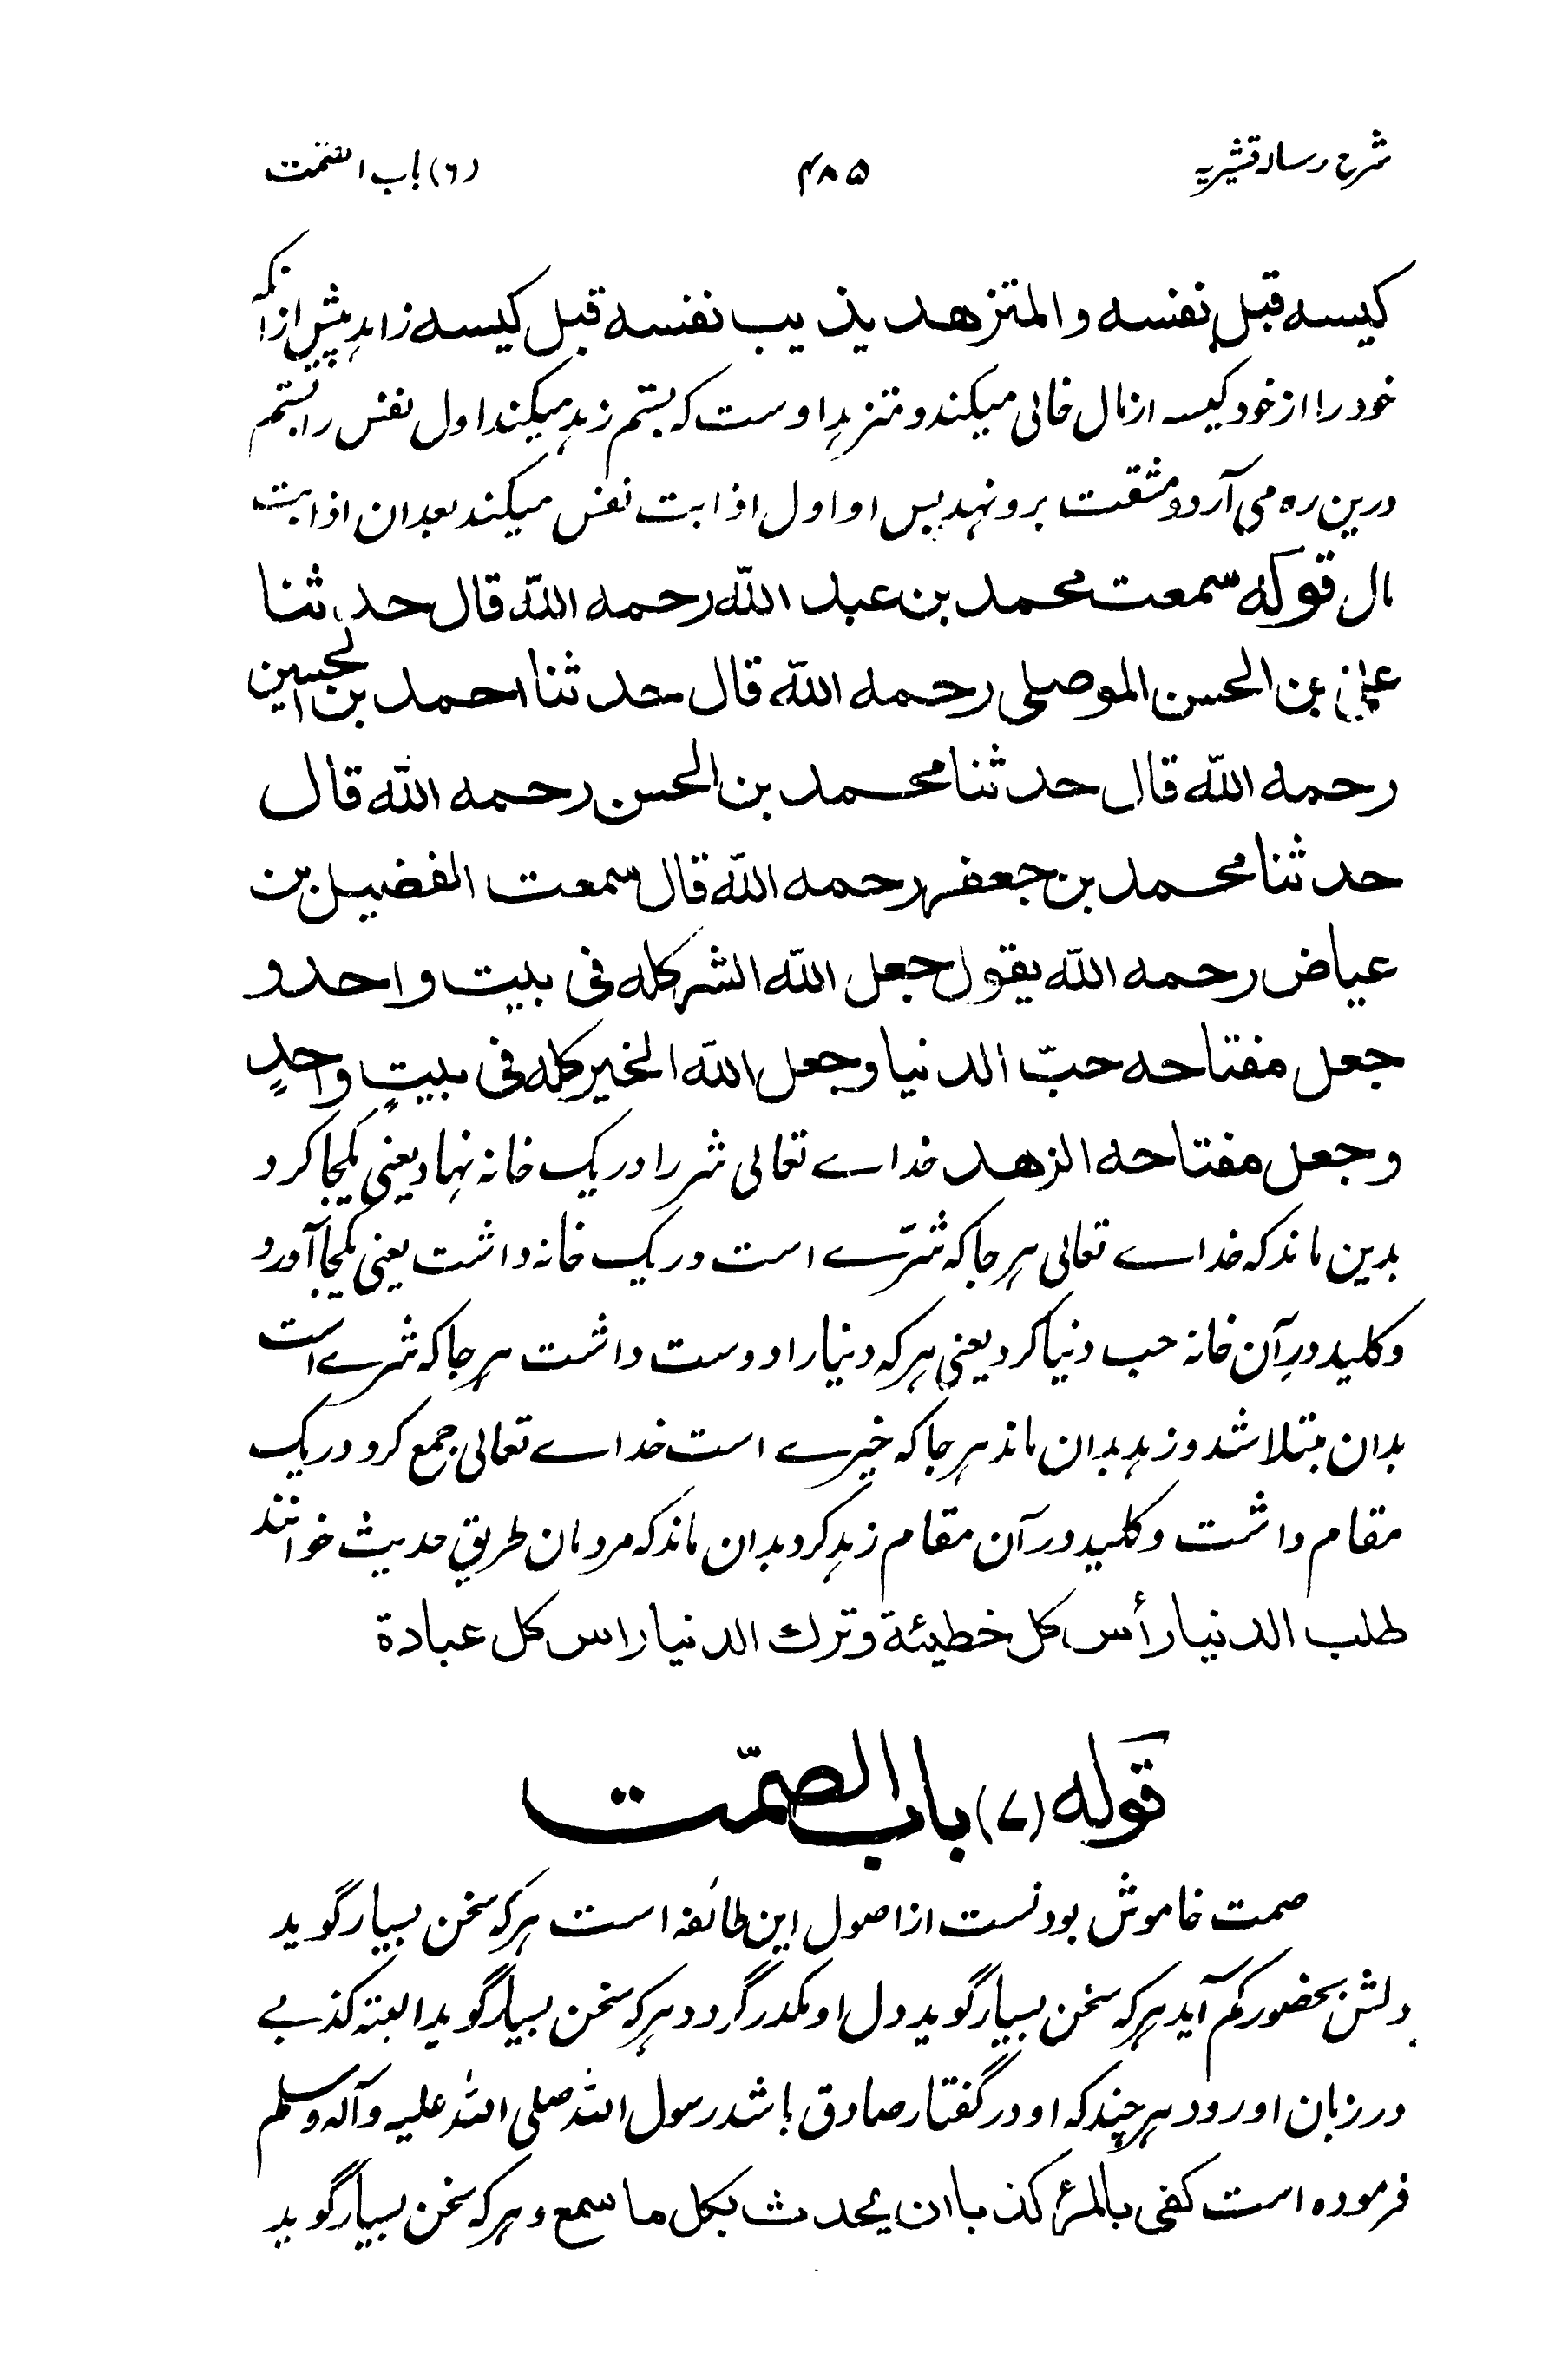 شرح رسالہ قشیریہ
۴۸۵
(۶) باب الصّمت
کیسه قبل نفسه والمتزهد یذیب نفسه قبل کیسه زاہد پیش از آنکہ
خود را از خود کیسہ از مال خالی میکند و متزہد اوست کہ بستم زہد میکند اول نفس را بستم
درین رہ می آرد و مشقت برو نہد پس او اول اذابت نفس میکند بعدان اذابت
مال قوله سمعت محمد بن عبد اللّه رحمه اللّه قال حدثنا
علی بن الحسن الموصلی رحمه اللّه قال حدثنا احمد بن الحسین
رحمه اللّه قال حدثنا محمد بن الحسن رحمه اللّه قال
حدثنا محمد بن جعفر رحمه اللّه قال سمعت الفضیل بن
عیاض رحمه اللّه یقول جعل اللّه الشر کله فی بیت واحد و
جعل مفتاحه حبّ الدنیا وجعل اللّه الخیر کله فی بیتٍ واحدٍ
وجعل مفتاحه الزهد خداے تعالی شر را در یک خانہ نہاد یعنی یکجا کرد
بدین ماند کہ خداے تعالی ہر جا کہ شرّے است در یک خانہ داشت یعنی یکجا آورد
و کلید درِ آن خانہ حب دنیا کرد یعنی ہر کہ دنیا را دوست داشت ہر جا کہ شرے است
بدان مبتلا شد و زہد بدان ماند ہر جا کہ خیرے است خداے تعالی جمع کرد در یک
مقام داشت و کلید در آن مقام زہد کرد بدان ماند کہ مردمان طریق حدیث خوانند
طلب الدنیا رأس کل خطیئة وترك الدنیا راس کل عبادة
قوله (۷) باب الصمّت
صمت خاموش بودنست از اصول این طائفہ است ہر کہ سخن بسیار گوید
دلش بحضور کم آید ہر کہ سخن بسیار گوید دل او مکدر گردد ہر کہ سخن بسیار گوید البتہ کذبے
در زبان او رود ہر چند کہ او در گفتار صادق باشد رسول اللہ صلی اللہ علیہ وآلہ وسلم
فرمودہ است کفی بالمرء کذبا ان یحدث بکل ما سمع و ہر کہ سخن بسیار گوید